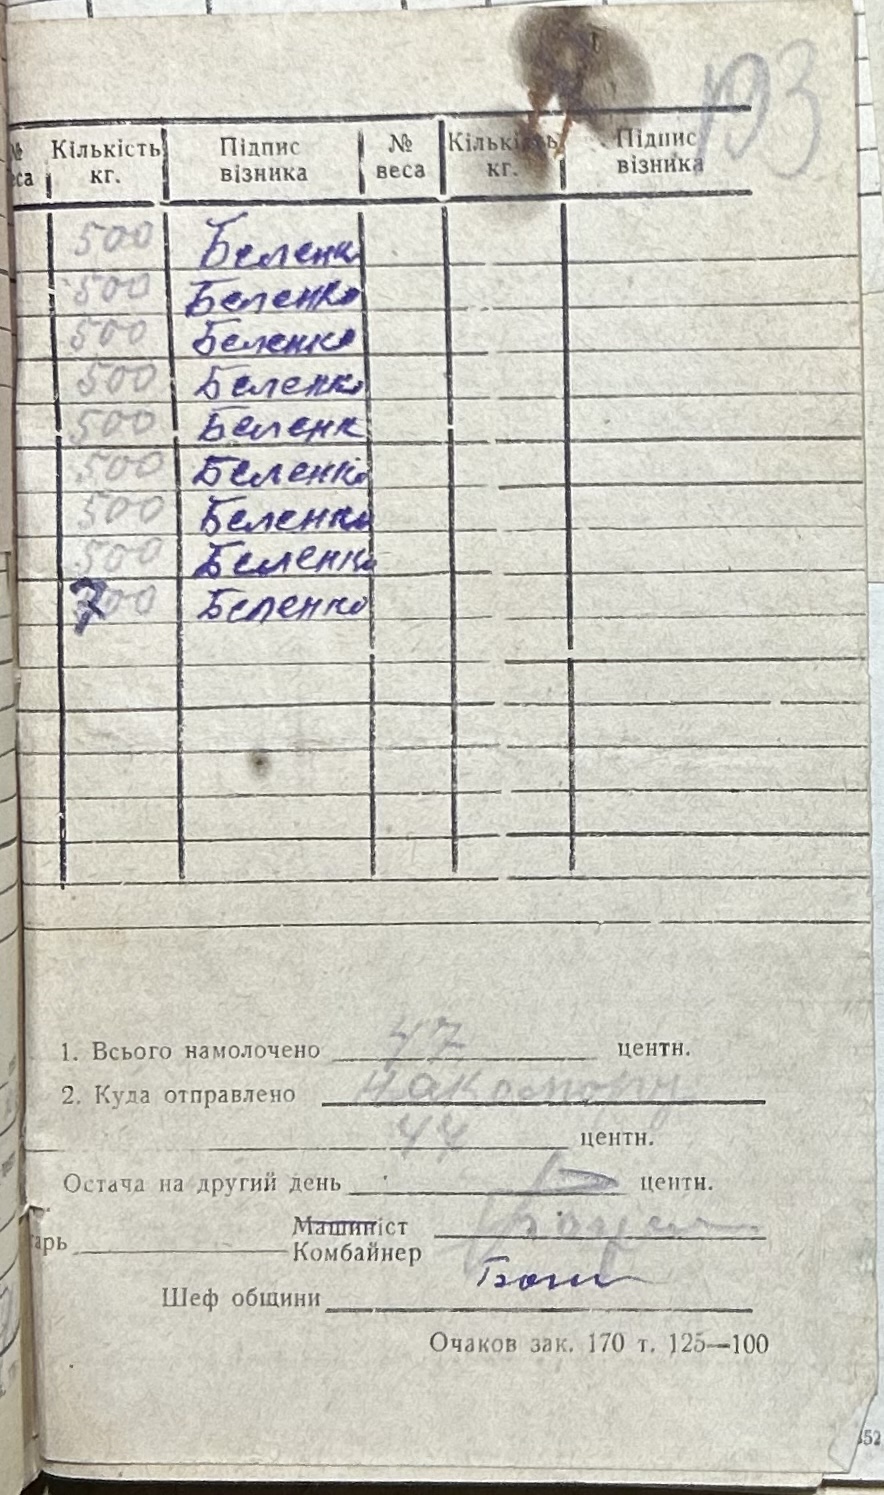 193
№ веса Кількість кг. Підпис візника № веса Кількість кг. Підпис візника
500 Беленк
500 Беленко
500 Беленко
500 Беленко
500 Беленк
500 Беленко
500 Беленко
500 Беленко
700 Беленко
1. Всього намолочено 47 центн.
2. Куда отправлено
центн.
Остача на другий день центн.
Машиніст
арь Комбайнер
Шеф общини
Очаков зак. 170 т. 125—100
352